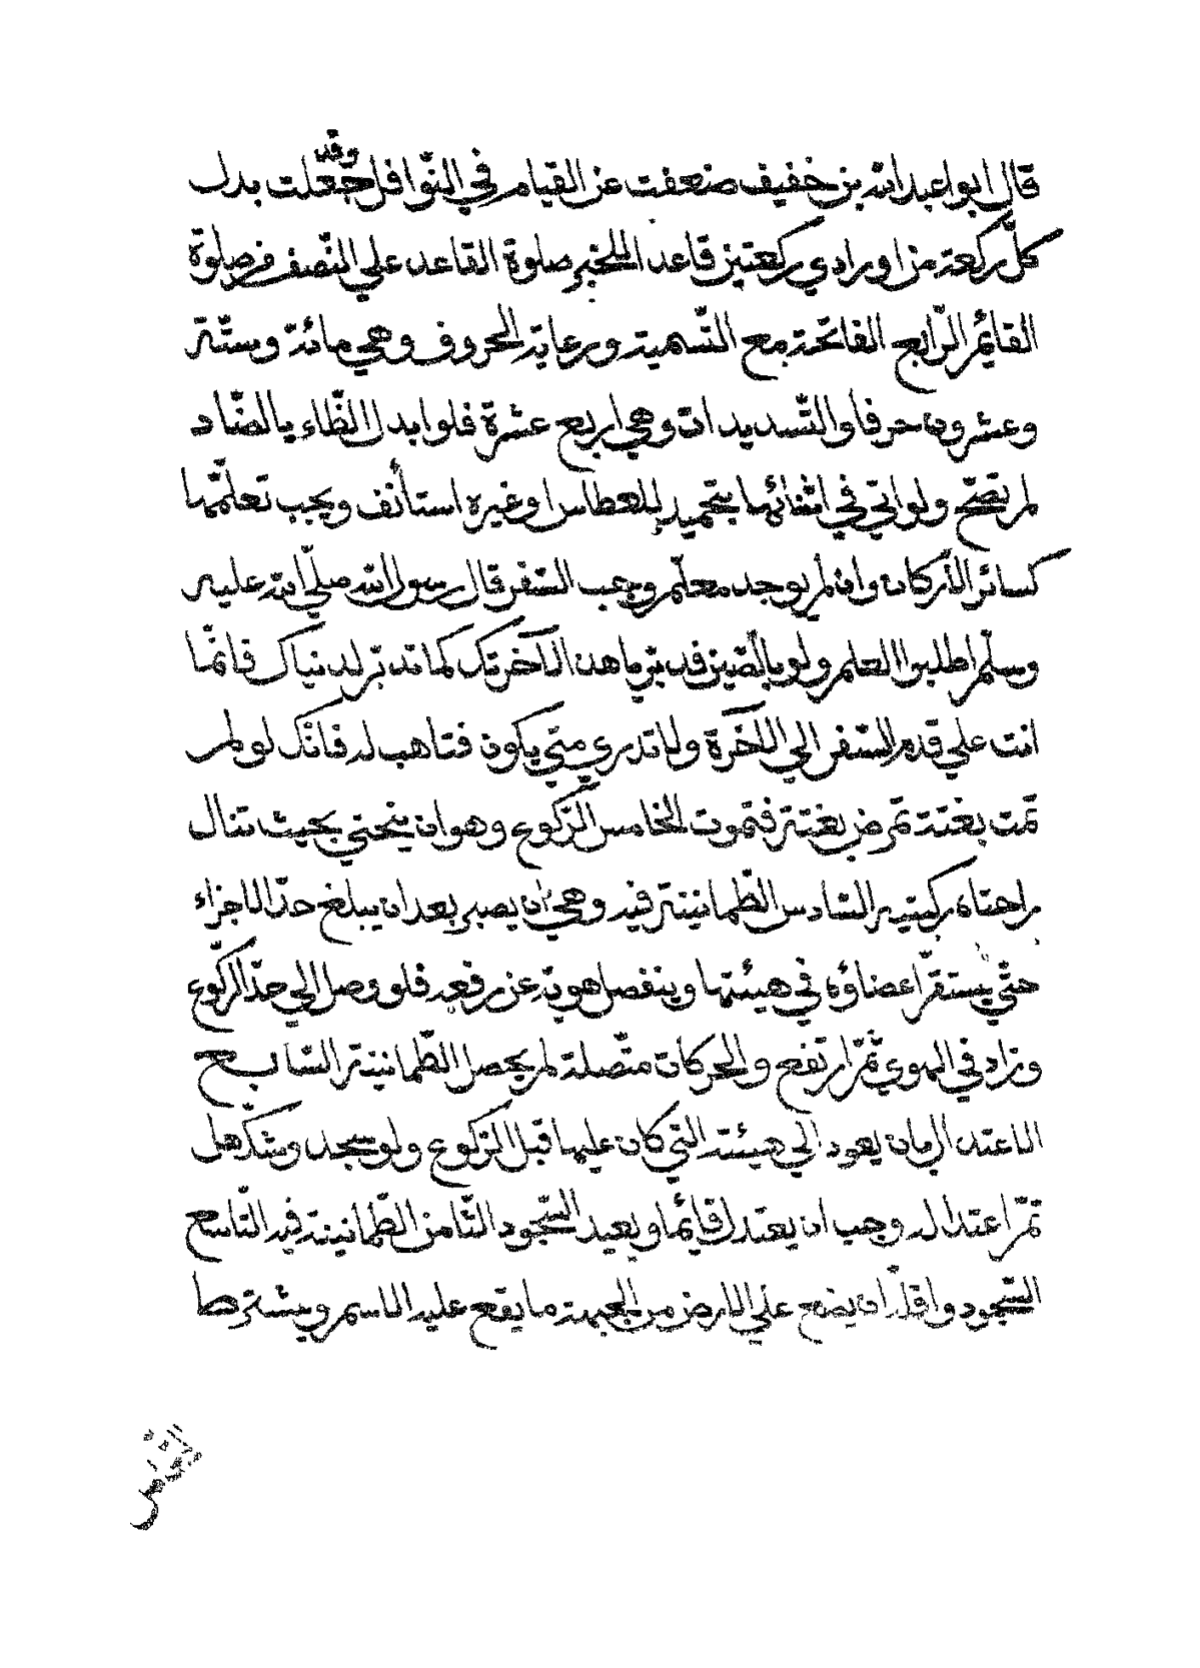 وقد
قال ابو عبد الله بن خفيف ضعفت عن القيام في النّوافل جعلت بدل
كلّ ركعة من اورادي ركعتين قاعدا للخبر صلوة القاعد علي النّصف من صلوة
القائم الرّابع الفاتحة مع التّسمية ورعاية الحروف وهي مائة وستّة
وعشرون حرفا والتّشديدات وهي اربع عشرة فلو ابدل الظّاء بالضّاد
لم تصحّ ولو اتي في اثنائها بتحميد للعطاس او غيره استأنف ويجب تعلّمها
كسائر الأركان وان لم يوجد معلّم وجب السّفر قال رسول الله صلّي الله عليه
وسلّم اطلبوا العلم ولو بالصّين فدبّر يا هذا الآخرتك كما تدبّر لدنياك فانّما
انت علي قدم السّفر الي الآخرة ولا تدري متي يكون فتاهب له فانّك لو لم
تمت بغتة تمرض بغتة فتموت الخامس الرّكوع وهو ان ينحني بحيث تنال
راحتاه ركبتيه السّادس الطّمانينة فيه وهي ان يصبر بعد ان يبلغ حدّ الاجزاء
حتّي يستقرّ اعضاؤه في هيئتها وينفصل هويّه عن رفعه فلو وصل الي حدّ الرّكوع
وزاد في الهوي ثمّ ارتفع والحركات متّصلة لم يحصل الطّمانينة السّابع
الاعتدال بان يعود الي هيئته التي كان عليها قبل الرّكوع ولو سجد وشكّ هل
تمّ اعتداله وجب ان يعتدل قائما ويعيد السّجود الثّامن الطّمانينة فيه التّاسع
السّجود واقلّه ان يضع علي الارض من الجبهة ما يقع عليه الاسم ويشترط